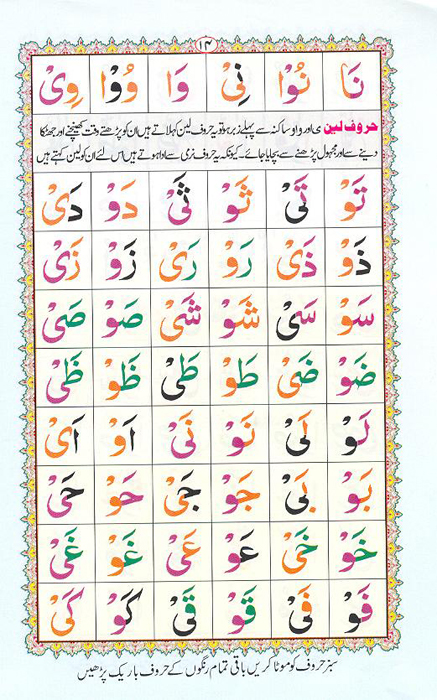 ١٤
نَا نُوْا نِىْ وَا وُوْا وِىْ
حروف لین ی اور واو ساکنہ سے پہلے زبر ہو تو یہ حروف لین کہلاتے ہیں ان کو پڑھتے وقت کھینچنے اور جھٹکا
دینے سے اور مجہول پڑھنے سے بچایا جائے۔ کیونکہ یہ حروف نرمی سے ادا ہوتے ہیں اس لئے ان کو لین کہتے ہیں
تَوْ تَىْ ثَوْ ثَىْ دَوْ دَىْ
ذَوْ ذَىْ رَوْ رَىْ زَوْ زَىْ
سَوْ سَىْ شَوْ شَىْ صَوْ صَىْ
ضَوْ ضَىْ طَوْ طَىْ ظَوْ ظَىْ
لَوْ لَىْ نَوْ نَىْ اَوْ اَىْ
بَوْ بَىْ جَوْ جَىْ حَوْ حَىْ
خَوْ خَىْ عَوْ عَىْ غَوْ غَىْ
فَوْ فَىْ قَوْ قَىْ كَوْ كَىْ
سبز حروف کو موٹا کریں باقی تمام رنگوں کے حروف باریک پڑھیں